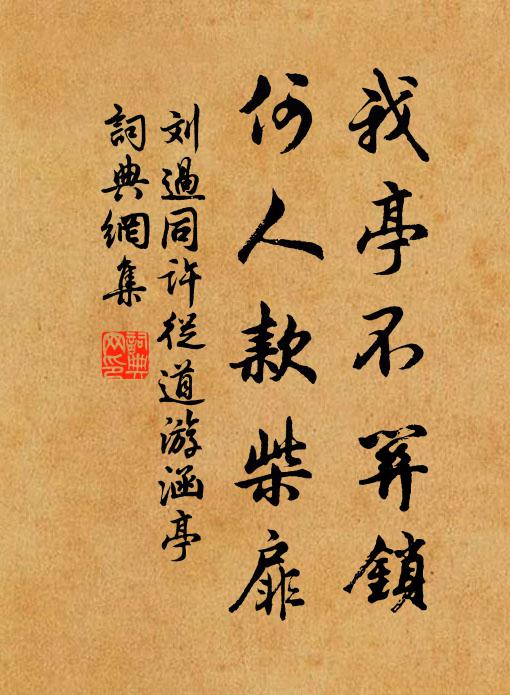 我亭不关鎖
何人款柴扉
刘過同许從道游涵亭
詞典網集
詞典网印